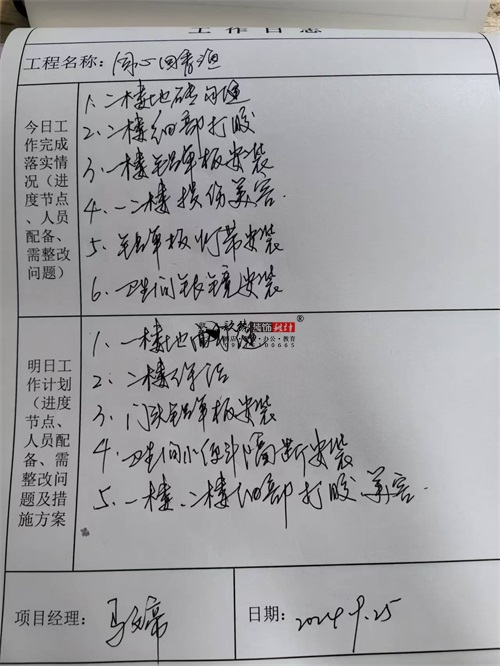 工作日志
工程名称：同心回香湘
今日工作完成落实情况（进度节点、人员配备、需整改问题）
1、二楼地砖勾缝
2、二楼细部打胶
3、一楼铝单板安装
4、一二楼损伤美容.
5、铝单板灯带安装
6、卫生间银镜安装
装饰设计®
酒店·办公·教育
明日工作计划（进度节点、人员配备、需整改问题及措施方案
1、一楼地面
2、二楼保洁
3、门头铝单板安装
4、卫生间小便斗隔断安装
5、一楼、二楼细部打胶美容.
项目经理：马
日期：2024 9.25